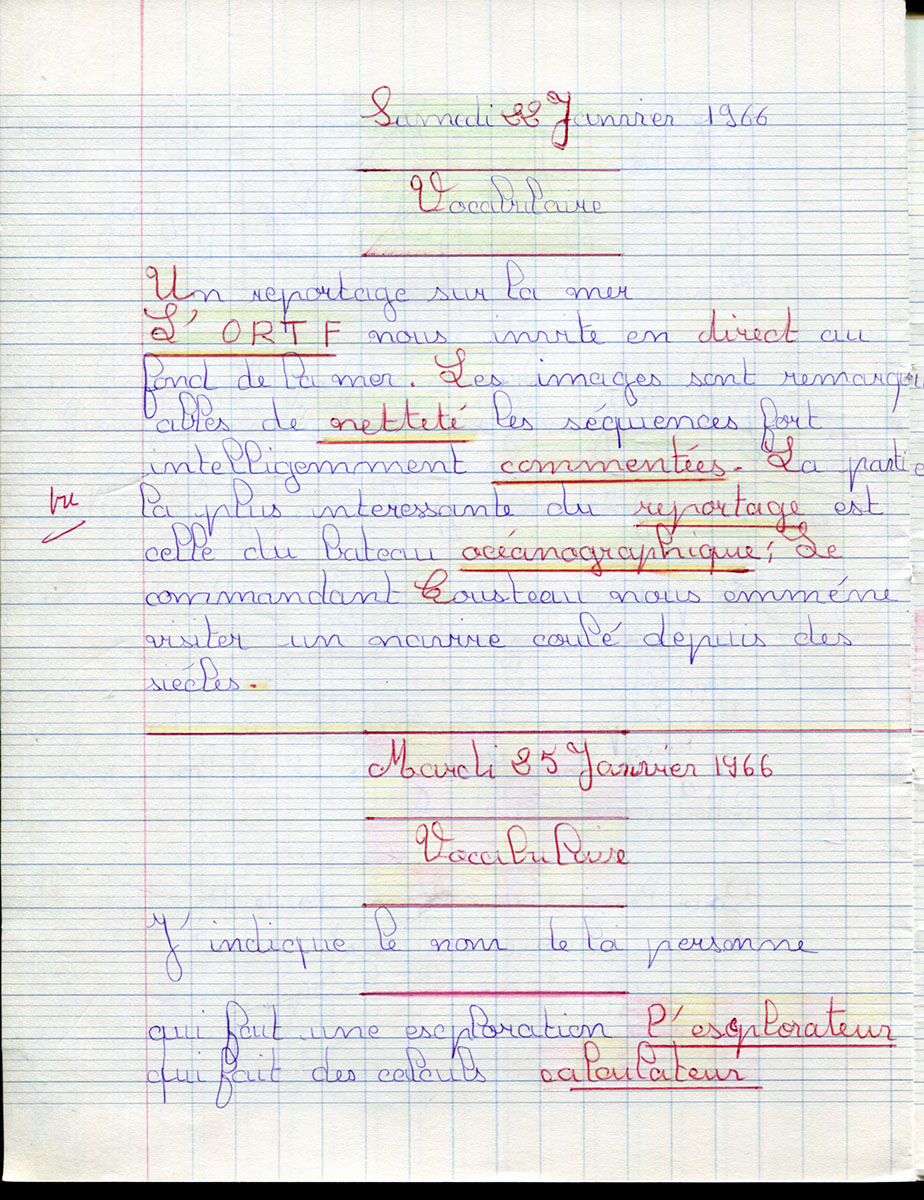 Samedi 22 Janvier 1966
Vocabulaire
Un reportage sur la mer
L' ORTF nous invite en direct au
fond de la mer. Les images sont remarqu
ables de netteté les séquences fort
intelligemment commentées. La partie
vu
la plus interessante du reportage est
celle du bateau océanographique; Le
commandant Cousteau nous emméne
visiter un navire coulé depuis des
siécles.
Mardi 25 Janvier 1966
Vocabulaire
J' indique le nom de la personne
qui fait une exploration l' explorateur
qui fait des calculs calculateur